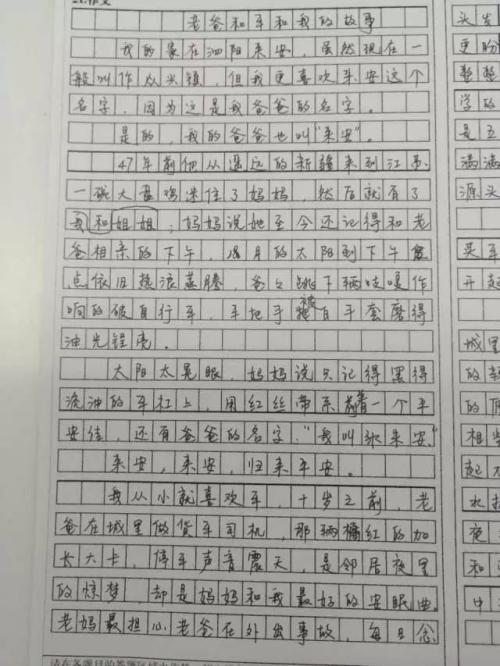 老爸和车和我的故事
我的家在泗阳来安，虽然现在一
般叫作众兴镇，但我更喜欢来安这个
名字，因为这是我爸爸的名字。
是的，我的爸爸也叫"来安"。
47年前他从遥远的新疆来到江苏
一碗大盘鸡迷住了妈妈，然后就有了
我和姐姐；妈妈说她至今还记得和老
爸相亲的下午，8月的太阳到下午
点依旧热浪蒸腾，爸爸跳下辆吱嘎作
响的破自行车，车把手被手套磨得
油光锃亮。
太阳太晃眼，妈妈说只记得黑得
流油的车杠上，用红丝带系着一个平
安结，还有爸爸的名字，"我叫张来安"
来安，来安，归来平安。
我从小就喜欢车，十岁之前，老
爸在城里做货车司机，那辆橘红的加
长大卡，停车声音震天，是邻居夜里
的惊梦，却是妈妈和我最好的安眠曲。
老妈最担心老爸在外出事故，每日念
头发
更盼
整整
学的
是五
满满
源头
买车
开起
城里
的
的
相
起
水
和
中